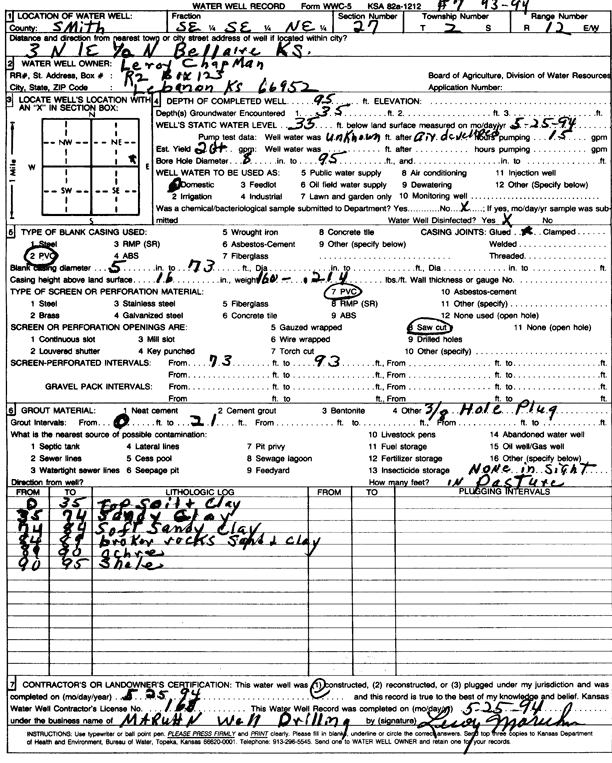 WATER WELL RECORD Form WWC-5 KSA 82a-1212 #7 93-94
1 LOCATION OF WATER WELL: Fraction Section Number Township Number Range Number
County: Smith SE ¼ SE ¼ NE ¼ 27 T 2 S R 12 E/W
Distance and direction from nearest town or city street address of well if located within city?
3 N 1E ¼ N Bellaire KS.
2 WATER WELL OWNER: Leroy Chapman
RR#, St. Address, Box # : R2 Box 123 Board of Agriculture, Division of Water Resources
City, State, ZIP Code : Lebanon Ks 66952 Application Number:
3 LOCATE WELL'S LOCATION WITH AN "X" IN SECTION BOX:
N
NW NE
W E
SW SE
S
1 Mile
4 DEPTH OF COMPLETED WELL 95 ft. ELEVATION:
Depth(s) Groundwater Encountered 1. 35 ft. 2. ft. 3.
WELL'S STATIC WATER LEVEL 35 ft. below land surface measured on mo/day/yr 5-25-94
Pump test data: Well water was unknown ft. after Air developed hours pumping 15
Est. Yield 20+ gpm: Well water was ft. after hours pumping
Bore Hole Diameter 8 in. to 95 ft., and in. to ft.
WELL WATER TO BE USED AS: 5 Public water supply 8 Air conditioning 11 Injection well
1 Domestic 3 Feedlot 6 Oil field water supply 9 Dewatering 12 Other (Specify below)
2 Irrigation 4 Industrial 7 Lawn and garden only 10 Monitoring well
Was a chemical/bacteriological sample submitted to Department? Yes No X ; If yes, mo/day/yr sample was submitted Water Well Disinfected? Yes X No
5 TYPE OF BLANK CASING USED: 5 Wrought iron 8 Concrete tile CASING JOINTS: Glued X Clamped
1 Steel 3 RMP (SR) 6 Asbestos-Cement 9 Other (specify below) Welded
2 PVC 4 ABS 7 Fiberglass Threaded
Blank casing diameter 5 in. to 73 ft., Dia in. to ft., Dia in. to ft.
Casing height above land surface 16 in., weight 160- .214 lbs./ft. Wall thickness or gauge No.
TYPE OF SCREEN OR PERFORATION MATERIAL: 7 PVC 10 Asbestos-cement
1 Steel 3 Stainless steel 5 Fiberglass 8 RMP (SR) 11 Other (specify)
2 Brass 4 Galvanized steel 6 Concrete tile 9 ABS 12 None used (open hole)
SCREEN OR PERFORATION OPENINGS ARE: 5 Gauzed wrapped 8 Saw cut 11 None (open hole)
1 Continuous slot 3 Mill slot 6 Wire wrapped 9 Drilled holes
2 Louvered shutter 4 Key punched 7 Torch cut 10 Other (specify)
SCREEN-PERFORATED INTERVALS: From 73 ft. to 93 ft., From ft. to ft.
From ft. to ft., From ft. to ft.
GRAVEL PACK INTERVALS: From ft. to ft., From ft. to ft.
From ft. to ft., From ft. to ft.
6 GROUT MATERIAL: 1 Neat cement 2 Cement grout 3 Bentonite 4 Other 3/8 Hole Plug
Grout Intervals: From 0 ft. to 21 ft., From ft. to ft., From ft. to ft.
What is the nearest source of possible contamination: 10 Livestock pens 14 Abandoned water well
1 Septic tank 4 Lateral lines 7 Pit privy 11 Fuel storage 15 Oil well/Gas well
2 Sewer lines 5 Cess pool 8 Sewage lagoon 12 Fertilizer storage 16 Other (specify below)
3 Watertight sewer lines 6 Seepage pit 9 Feedyard 13 Insecticide storage NONE in Sight
Direction from well? How many feet? IN Pasture
FROM TO LITHOLOGIC LOG FROM TO PLUGGING INTERVALS
0 35 Top Soil + Clay
35 74 Sandy Clay
74 84 Soft Sandy Clay
84 89 broken rocks Sand + clay
89 90 ochre
90 95 Shale
7 CONTRACTOR'S OR LANDOWNER'S CERTIFICATION: This water well was (1) constructed, (2) reconstructed, or (3) plugged under my jurisdiction and was
completed on (mo/day/year) 5 25 94 and this record is true to the best of my knowledge and belief. Kansas
Water Well Contractor's License No. 168 This Water Well Record was completed on (mo/day/yr) 5-25-94
under the business name of MARUHN Well Drilling by (signature) Leroy Maruhn
INSTRUCTIONS: Use typewriter or ball point pen. PLEASE PRESS FIRMLY and PRINT clearly. Please fill in blanks, underline or circle the correct answers. Send top three copies to Kansas Department
of Health and Environment, Bureau of Water, Topeka, Kansas 66620-0001. Telephone: 913-296-5545. Send one to WATER WELL OWNER and retain one for your records.